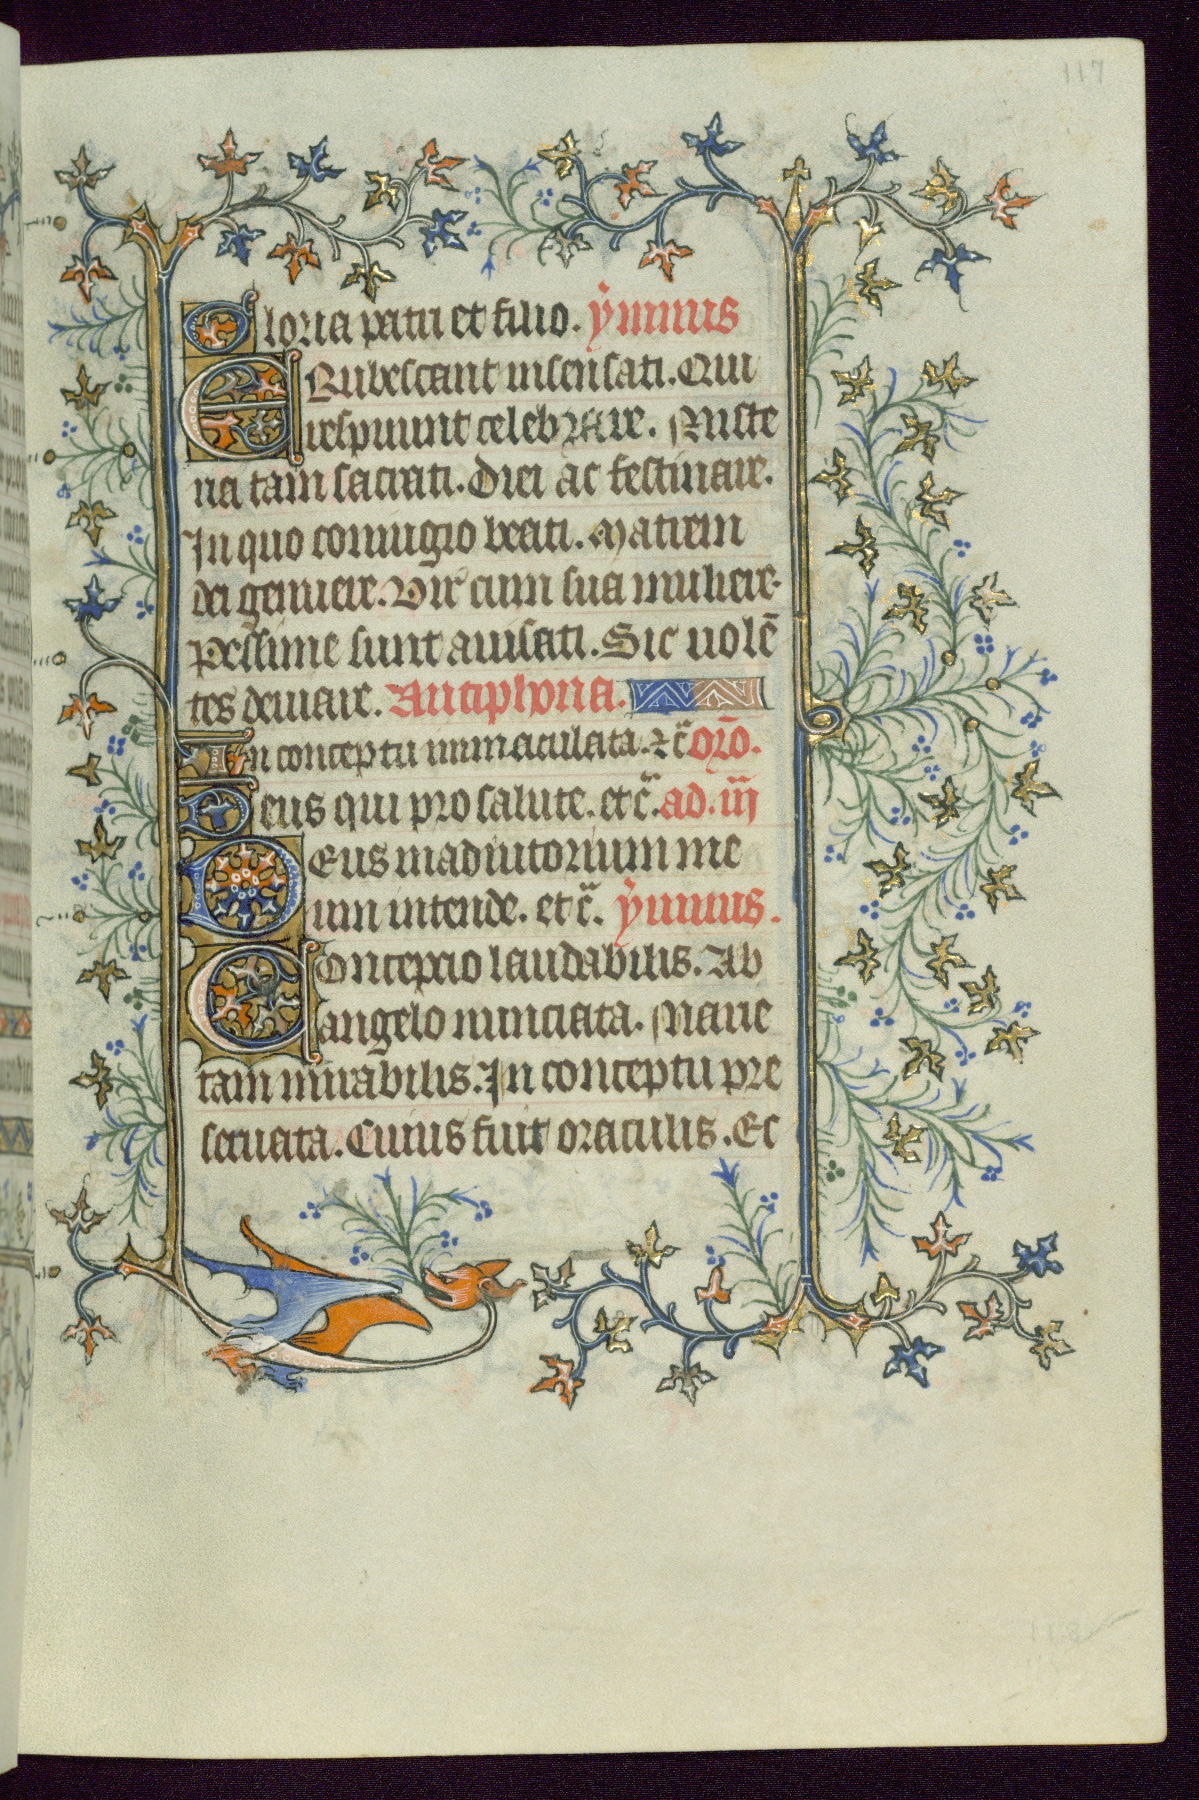 117
Gloria patri et filio. ẏmnus
Erubescant insensati. Qui
respuunt celebrare. Miste
ria tam sacrati. Diei ac festinare.
In quo coniugio beati. Matrem
dei genuere. Vir cum sua muliere.
Pessime sunt auisati. Sic nolē
tes deuiare. Antiphona.
In conceptu immaculata. ⁊c̄ orō.
Deus qui pro salute. etc̄. ad. iij
Deus in adiutorium me
um intende. etc̄. ẏmnus.
Concepcio laudabilis. Ab
angelo nunciata. Marie
tam mirabilis. In conceptu pre
seruata. Cuius fuit oraculis. Et